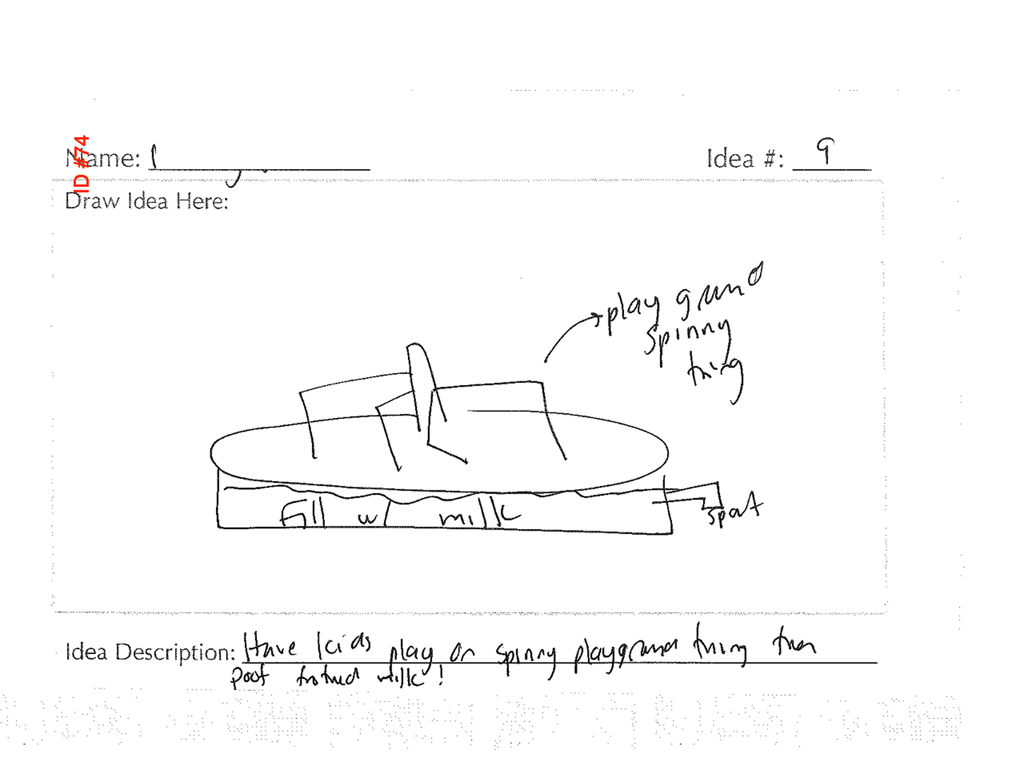 ID #74
Name:
Idea #: 9
Draw Idea Here:
play ground
spinny
thing
Fill w/ milk
spout
Idea Description: Have kids play on spinny playground thing then
poof frothed milk!